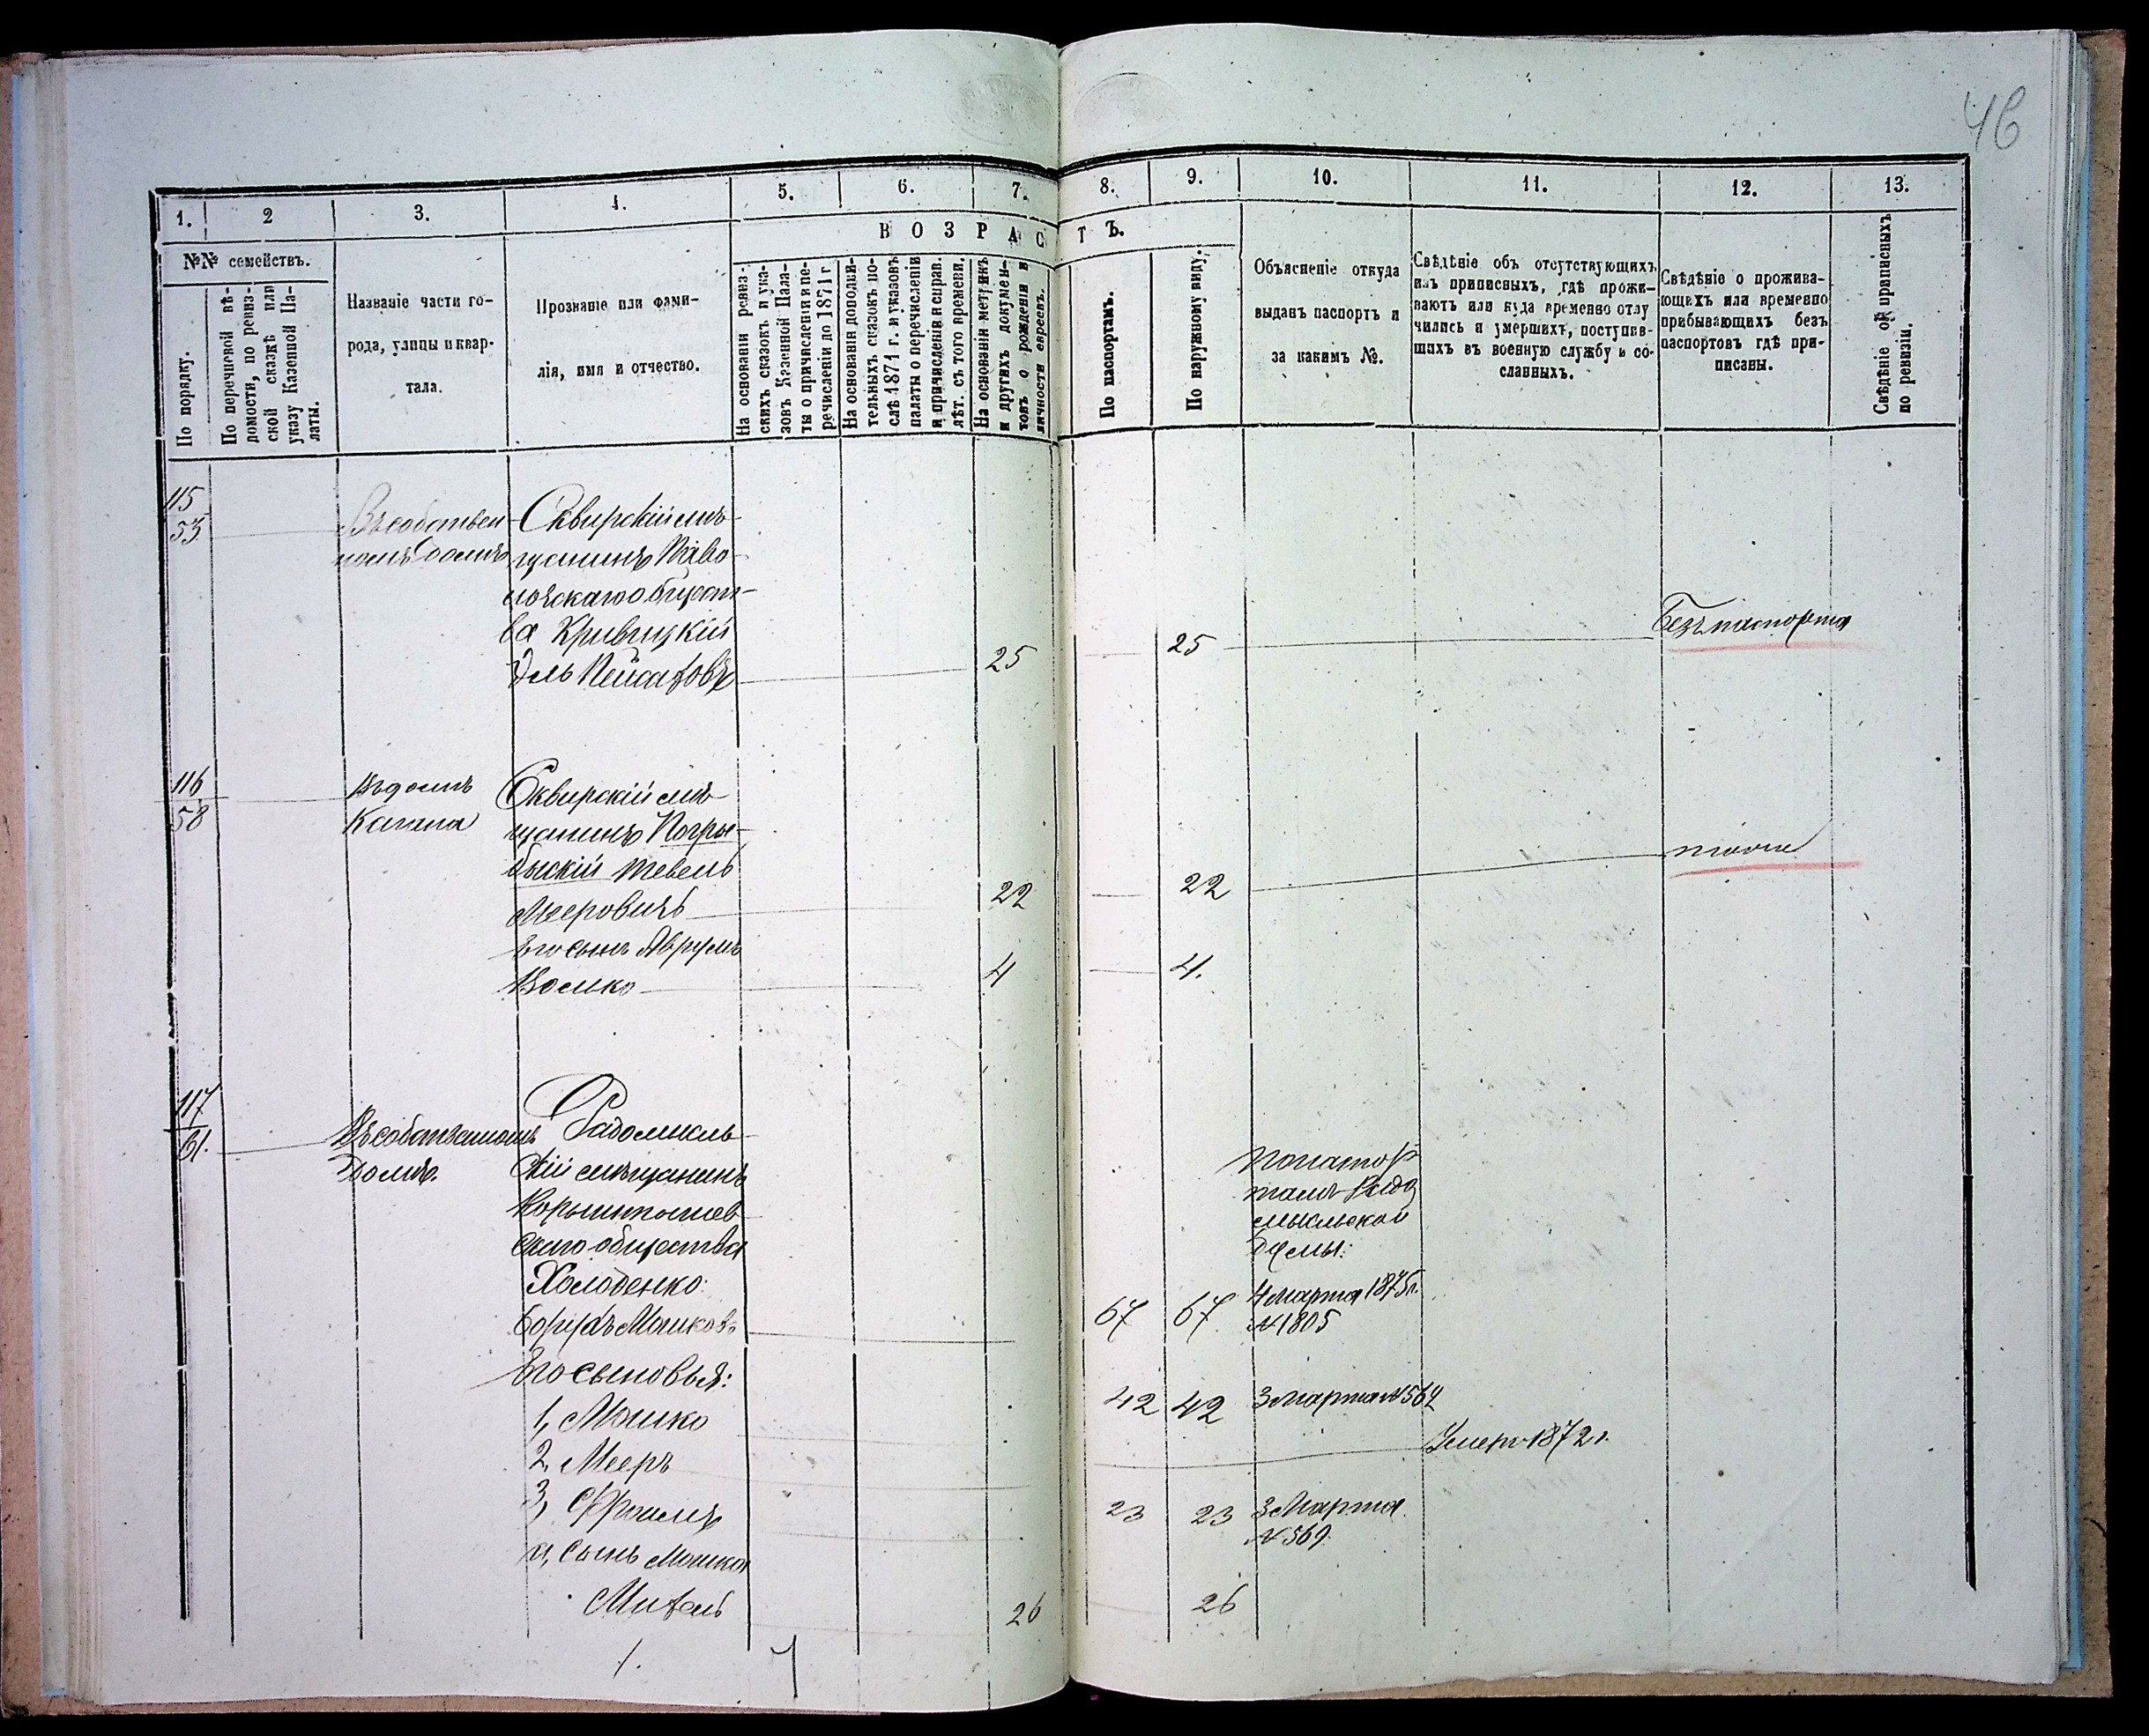 46
1.
2
3.
4.
5.
6.
7.
8.
9.
10.
11.
12.
13.
ВОЗРАСТЪ.
№№ семействъ.
По порядку.
По перечневой вѣ-
домости, по ревиз-
ской сказкѣ или
указу Казенной Па-
латы.
Названіе части го-
рода, улицы и квар-
тала.
Прозваніе или фами-
лія, имя и отчество.
На основаніи ревиз-
скихъ сказокъ и ука-
зовъ Казенной Пала-
ты о причисленіи и пе-
речисленіи до 1871 г
На основаніи дополни-
тельныхъ сказокъ по-
слѣ 1871 г. и указовъ
палаты о перечисленіи
и причисленіи и справ.
лѣт. съ того времени.
На основаніи метрикъ
и другихъ докумен-
товъ о рожденіи и
личности евреевъ.
По паспортамъ.
По наружному виду.
Объясненіе откуда
выданъ паспортъ и
за какимъ №.
Свѣдѣніе объ отсутствующихъ
изъ приписныхъ, гдѣ прожи-
ваютъ или куда временно отлу
чились и умершихъ, поступив-
шихъ въ военную службу и со-
сланныхъ.
Свѣдѣніе о прожива-
ющихъ или временно
прибывающихъ безъ
паспортовъ гдѣ при-
писаны.
Свѣдѣніе о приписныхъ
по ревизіи.
115
53
Въ собствен
номъ домѣ
Сквирскій мѣ-
щанинъ Паво-
лочскаго общест-
ва Кривицкій
Эль Пейсаховъ
25
25
Безъ паспорта
116
58
Въ домѣ
Кагана
Сквирскій мѣ-
щанинъ Погры-
быскій Тевель
Мееровичъ
22
22
тоже
Его сынъ Аврумъ
Волько
4
4.
117
61.
Въ собственномъ
домѣ.
Радомысль-
скій мѣщанинъ
Коростышев-
скаго общества
Холоденко:
Борухъ Мошковъ
67
67
По паспор
тамъ Радо
мысльской
Думы:
4 марта 1875 г.
№ 1805
Его сыновья:
1, Мошко
42
42
3 марта № 564
2, Мееръ
Умеръ 1872 г.
3, Фроимъ
23
23
3 Марта
№ 569.
а, сынъ Мошки
Михель
26
26
1.
4